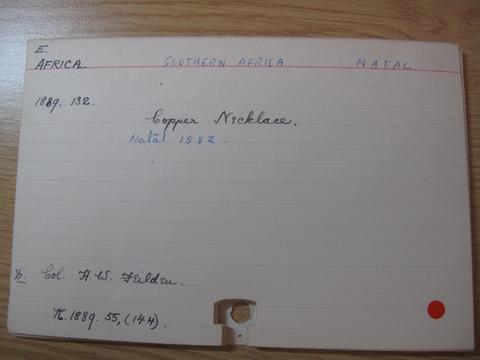 E.
AFRICA. SOUTHERN AFRICA NATAL
1889. 132.
Copper Necklace.
Natal 1882.
D. Col. H. W. Feilden.
R. 1889. 55, (144).